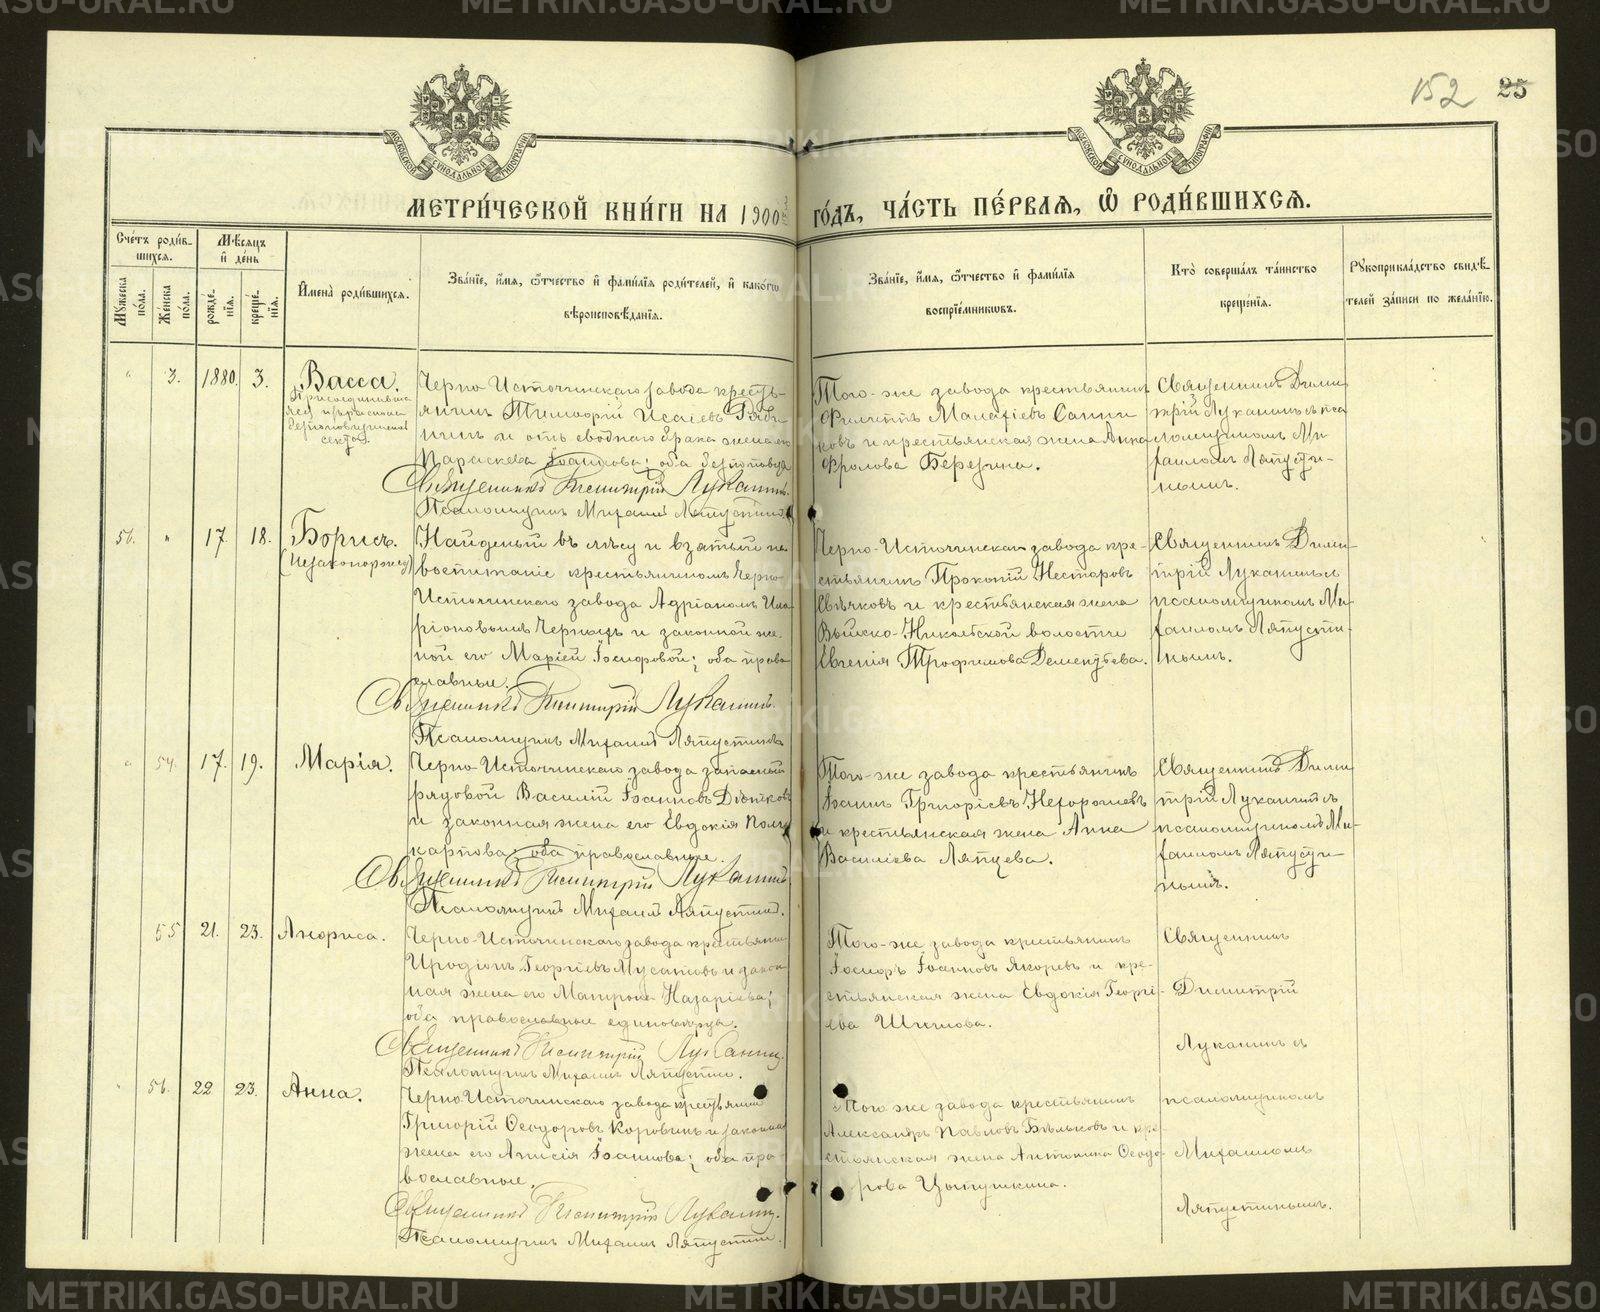 152 25
МОСКОВСКОЙ СѴНОДАЛЬНОЙ ТИПОГРАФІИ
МОСКОВСКОЙ СѴНОДАЛЬНОЙ ТИПОГРАФІИ
МЕТРИ́ЧЕСКОЙ КНИ́ГИ НА 1900й ГО́ДЪ, ЧА́СТЬ ПЕ́РВАѦ, Ѡ҆ РОДИ́ВШИХСѦ.
Сче́тъ роди́в-
шихсѧ.
Мꙋ́жеска по́ла.
Же́нска по́ла.
Мѣ́сѧцъ и҆ де́нь
рожде́-нїѧ.
креще́-нїѧ.
И҆мена̀ роди́вшихсѧ.
Зва́нїе, и҆́мѧ, ѻ҆́тчество и҆ фами́лїѧ роди́телей, и҆ како́гѡ
вѣроисповѣ́данїѧ.
Зва́нїе, и҆́мѧ, ѻ҆́тчество и҆ фами́лїѧ
воспрїе́мникѡвъ.
Кто̀ соверша́лъ та́инство
креще́нїѧ.
Рꙋкоприкла́дство свидѣ́-
телей за́писи по жела́нїю.
" 3. 1880. 3. Васса.
Присоединивша
яся из раскола
безпоповщинской
секты.
Черно-Источинскаго завода кресть-
янинъ Тимофей Исаіевъ
и отъ своднаго брака жена его
Параскева Іоаннова; оба безпоповцы
Священникъ Димитрій Лукашинъ.
Псаломщикъ Михаилъ Ляпустинъ.
Того-же завода крестьянинъ
и крестьянская жена Анна
Фролова Березина.
Священникъ Дими
трій Лукашинъ съ пса
ломщикомъ Ми
хаиломъ Ляпусти-
нымъ.
56. " 17. 18. Борисъ.
(Незаконорожд)
Найденый въ лѣсу и взятый на
воспитаніе крестьяниномъ Черно-
Источинскаго завода Адріаномъ Ила-
ріоновымъ и законной же-
ной его Маріей Іосифовой; оба право
славные.
Священникъ Димитрій Лукашинъ.
Псаломщикъ Михаилъ Ляпустинъ
Черно-Источинскаго завода кре-
стьянинъ Прокопій Несторовъ
и крестьянская жена
Выйско-Никольской волости
Евгенія Трофимова Дементьева.
Священникъ Дими-
трій Лукашинъ съ
псаломщикомъ Ми-
хаиломъ Ляпусти-
нымъ.
" 54. 17. 19. Марія.
Черно-Источинскаго завода запасный
рядовой Василій Іоанновъ
и законная жена его Евдокія Поли
карпова; оба православные.
Священникъ Димитрій Лукашинъ
Псаломщикъ Михаилъ Ляпустинъ.
Того-же завода крестьянинъ
Іоаннъ Григоріевъ Нехорошевъ
и крестьянская жена Анна
Василіева Ляпцева.
Священникъ Дими
трій Лукашинъ съ
псаломщикомъ Ми-
хаиломъ Ляпусти-
нымъ.
55 21. 23. Анфиса.
Черно-Источинскаго завода крестьянинъ
Иродіонъ Георгіевъ Мусатовъ и закон
ная жена его Матрона Назаріева;
оба православные единоверцы.
Священникъ Димитрій Лукашинъ.
Псаломщикъ Михаилъ Ляпустинъ.
Того-же завода крестьянинъ
Іосифъ Іоанновъ Якоревъ и кре-
стьянская жена Евдокія Георгі-
ева Шипова.
Священникъ
Димитрій
Лукашинъ съ
" 56. 22 23. Анна.
Черно-Источинскаго завода крестьянинъ
Григорій Ѳеодоровъ Коровинъ и законная
жена его Анисія Іоаннова; оба пра
вославные.
Священникъ Димитрій Лукашинъ.
Псаломщикъ Михаилъ Ляпустинъ.
Того же завода крестьянинъ
Александръ Павловъ Бѣльковъ и кре
стьянская жена Антонина Ѳеодо-
рова Цыпушкина.
псаломщикомъ
Михаиломъ
Ляпустинымъ.
METRIKI.GASO-URAL.RU